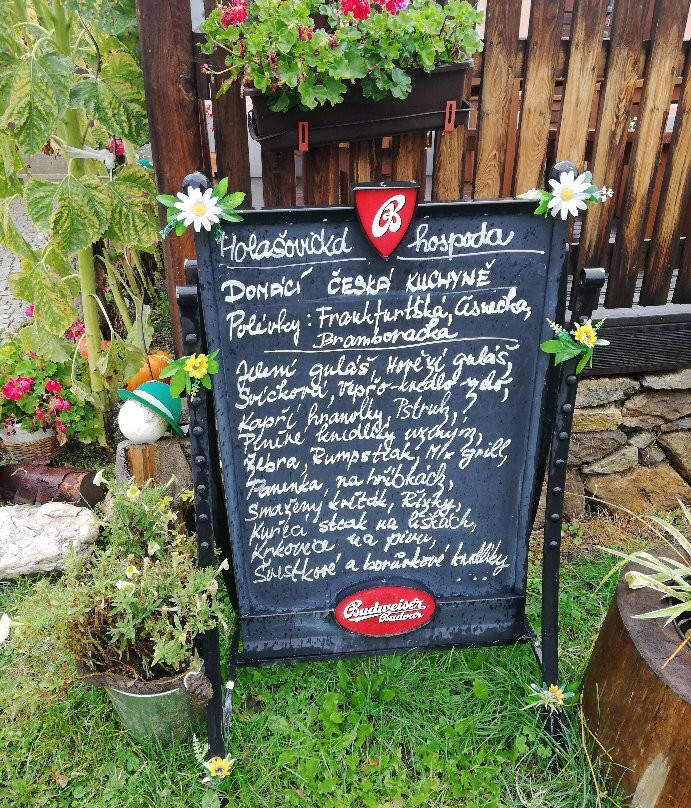 B
Holašovická hospoda
DOMÁCÍ ČESKÁ KUCHYNĚ
Polévky: Frankfurtská, Česnečka,
Bramboračka
Jelení guláš, Hovězí guláš,
Svíčková, Vepřo-knedlo-zelo,
Kapří hranolky, Pstruh,
Plněné knedlíky uzeným,
Žebra, Rumpsteak, Mix Grill,
Panenka na hříbkách,
Smažený květák, Řízky,
Kuřecí steak na liškách,
Krkovice na pivu,
Švestkové a borůvkové knedlíky
...
Budweiser
Budvar